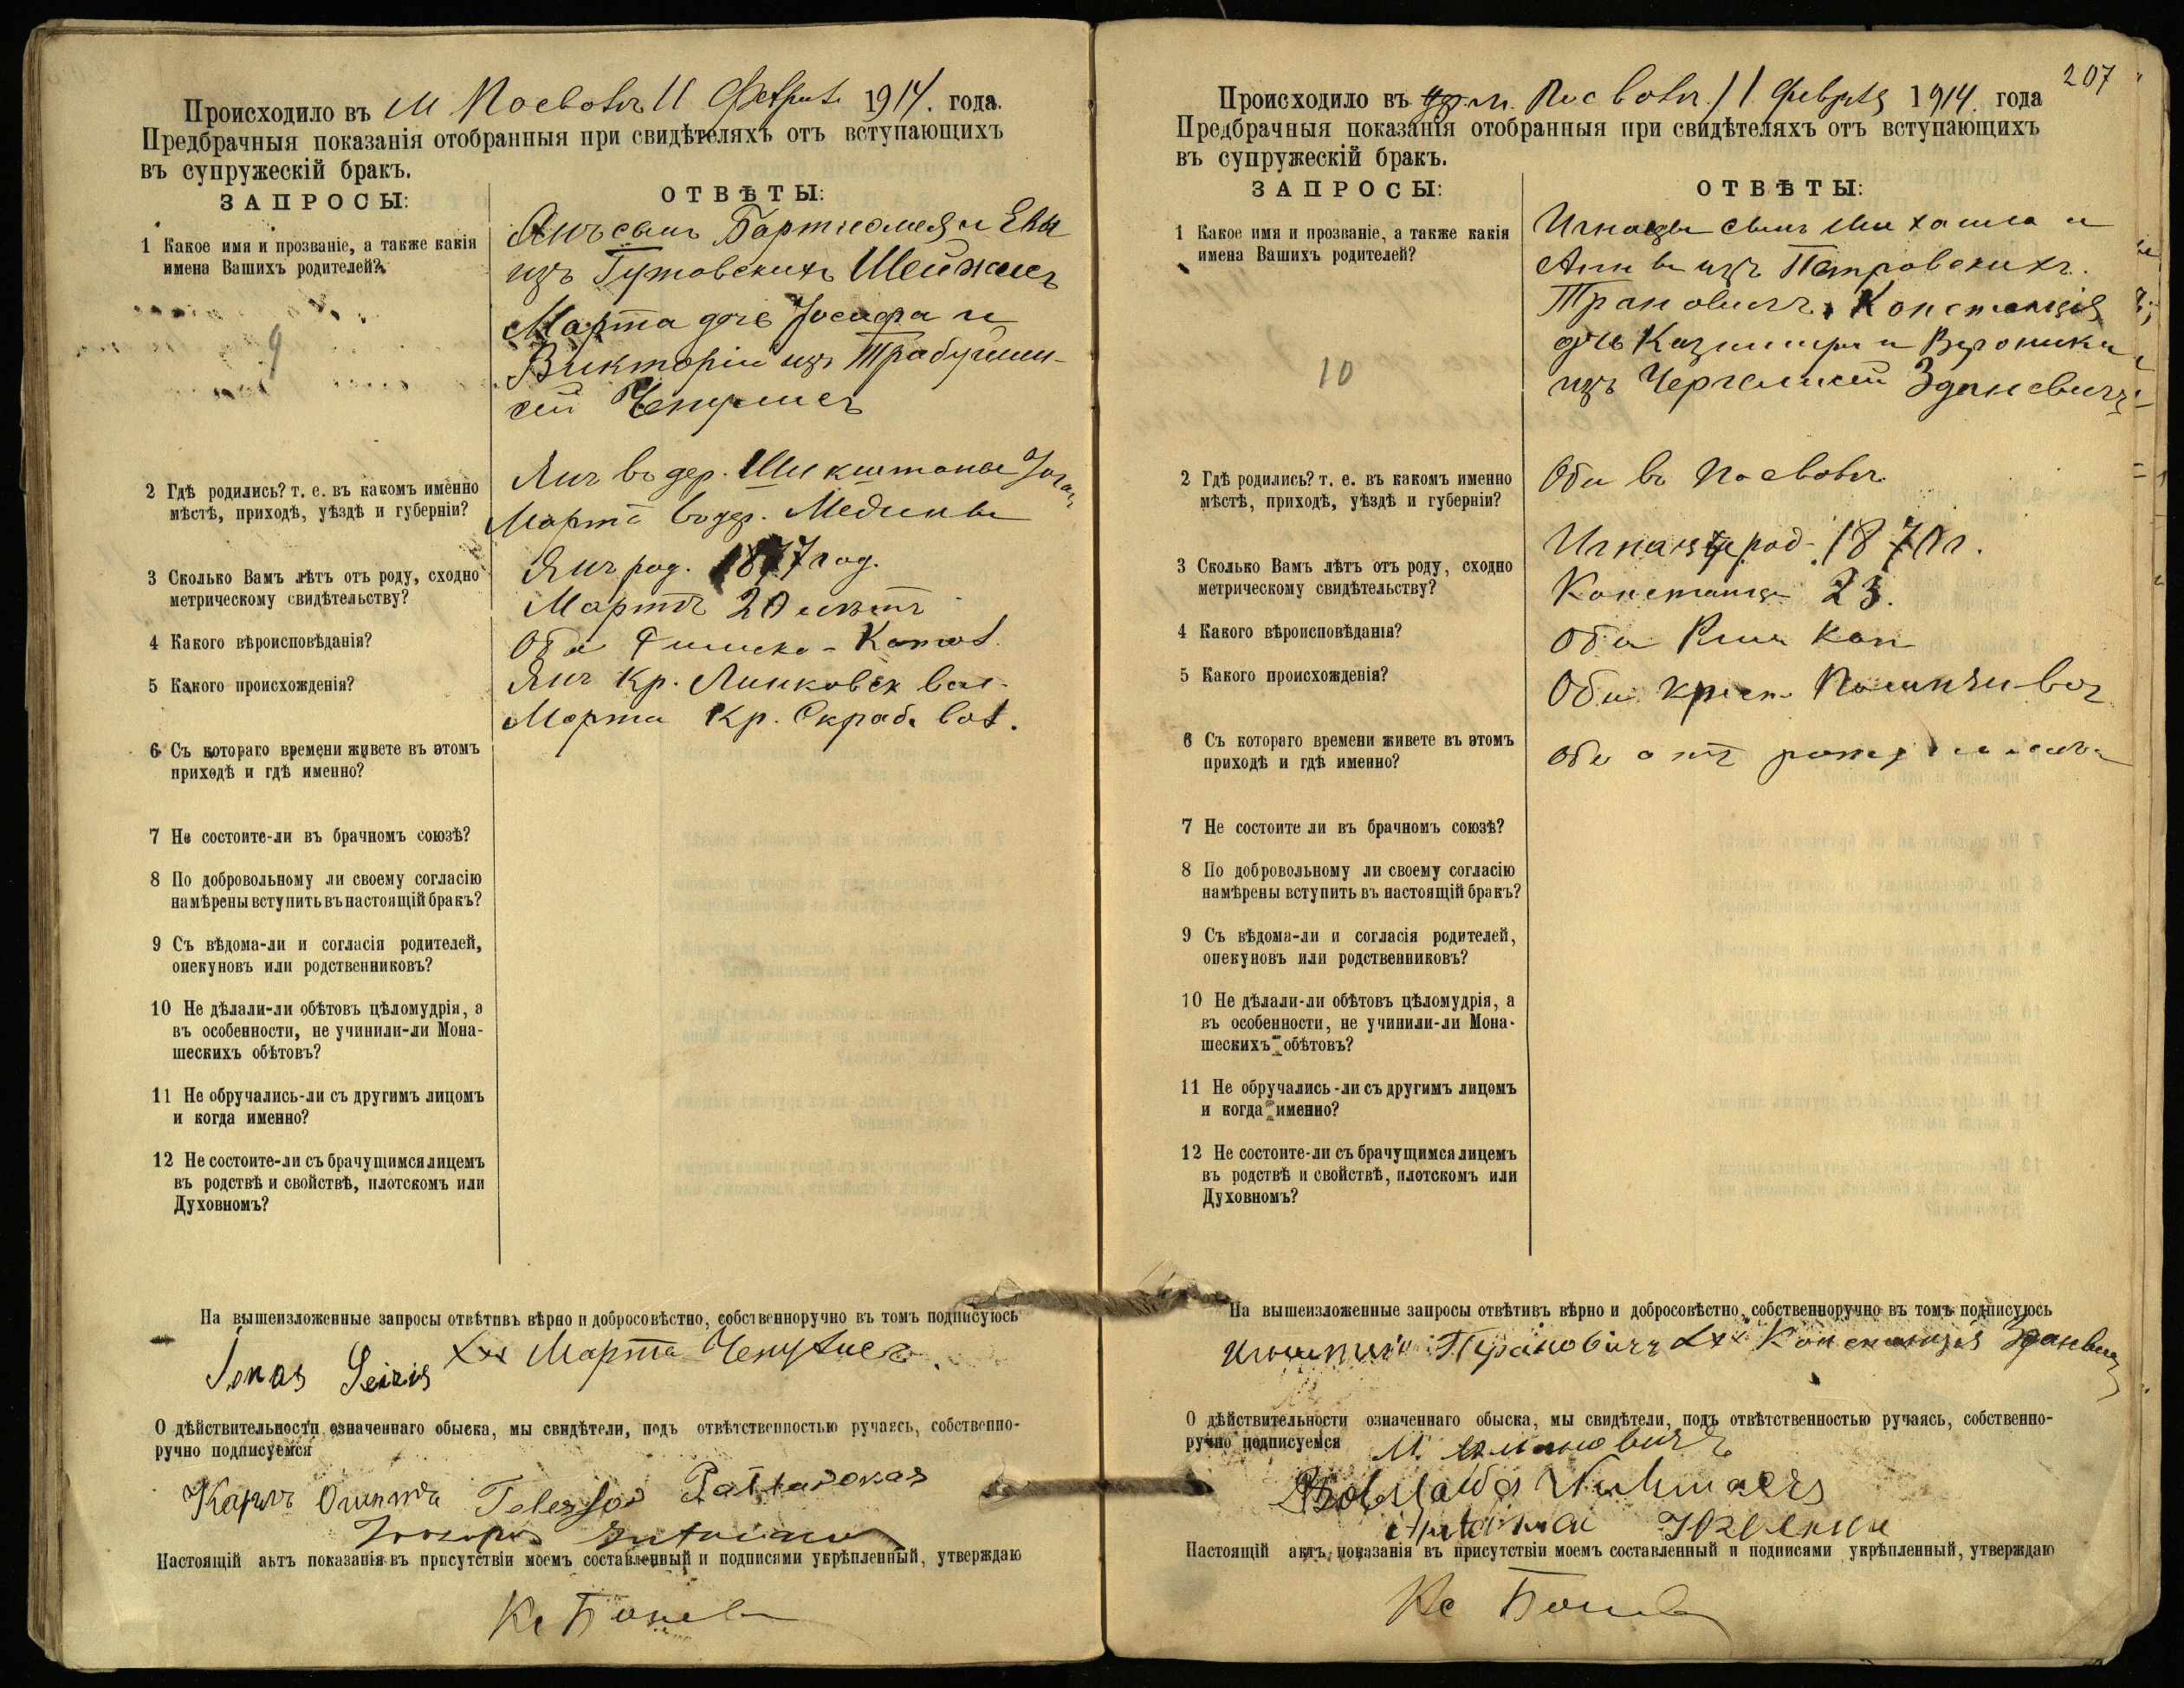 Происходило въ м Посволь 11 Февраля 1914. года.
Предбрачныя показанія отобранныя при свидѣтеляхъ отъ вступающихъ
въ супружескій бракъ.
ЗАПРОСЫ:
ОТВѢТЫ:
1 Какое имя и прозваніе, а также какія
имена Вашихъ родителей?
9
Янъ сынъ Бартномея и Евы
изъ Гутовскихъ Шейжисъ
Марта дочь Іосифа и
Викторіи изъ
Чепулисъ
2 Гдѣ родились? т. е. въ какомъ именно
мѣстѣ, приходѣ, уѣздѣ и губерніи?
Янъ въ дер.
Марта въ дер. Медины
3 Сколько Вамъ лѣтъ отъ роду, сходно
метрическому свидѣтельству?
Янъ род. 1877 год.
Марта 20 лѣтъ
4 Какого вѣроисповѣданія?
Оба Римско-Катол.
5 Какого происхожденія?
Янъ Кр. Линковск вол.
Марта Кр. Скраб. вол.
6 Съ котораго времени живете въ этомъ
приходѣ и гдѣ именно?
7 Не состоите-ли въ брачномъ союзѣ?
8 По добровольному ли своему согласію
намѣрены вступить въ настоящій бракъ?
9 Съ вѣдома-ли и согласія родителей,
опекуновъ или родственниковъ?
10 Не дѣлали-ли обѣтовъ цѣломудрія, а
въ особенности, не учинили-ли Мона-
шескихъ обѣтовъ?
11 Не обручались-ли съ другимъ лицомъ
и когда именно?
12 Не состоите-ли съ брачущимся лицемъ
въ родствѣ и свойствѣ, плотскомъ или
Духовномъ?
На вышеизложенные запросы отвѣтивъ вѣрно и добросовѣстно, собственноручно въ томъ подписуюсь
Jonas Seizis xxx Марта Чепулисъ.
О дѣйствительности означеннаго обыска, мы свидѣтели, подъ отвѣтственностью ручаясь, собственно-
ручно подписуемся
Карлъ
Настоящій актъ показанія въ присутствіи моемъ составленный и подписями укрѣпленный, утверждаю
Кс
207
Происходило въ м. Посволь 11 Февраля 1914. года
Предбрачныя показанія отобранныя при свидѣтеляхъ отъ вступающихъ
въ супружескій бракъ.
ЗАПРОСЫ:
ОТВѢТЫ:
1 Какое имя и прозваніе, а также какія
имена Вашихъ родителей?
10
Игнацы сынъ Михаила и
Анны изъ Петровскихъ
Трановичъ, Констанція
дочь Казимира и Вероники
изъ Зданевичъ
2 Гдѣ родились? т. е. въ какомъ именно
мѣстѣ, приходѣ, уѣздѣ и губерніи?
Оба въ Посволь
3 Сколько Вамъ лѣтъ отъ роду, сходно
метрическому свидѣтельству?
Игнацы род. 1870 г.
Констанція 23.
4 Какого вѣроисповѣданія?
Оба Рим Кат
5 Какого происхожденія?
Оба крест.
6 Съ котораго времени живете въ этомъ
приходѣ и гдѣ именно?
Оба отъ рожденія
7 Не состоите ли въ брачномъ союзѣ?
8 По добровольному ли своему согласію
намѣрены вступить въ настоящій бракъ?
9 Съ вѣдома-ли и согласія родителей,
опекуновъ или родственниковъ?
10 Не дѣлали-ли обѣтовъ цѣломудрія, а
въ особенности, не учинили-ли Мона-
шескихъ обѣтовъ?
11 Не обручались-ли съ другимъ лицомъ
и когда именно?
12 Не состоите-ли съ брачущимся лицемъ
въ родствѣ и свойствѣ, плотскомъ или
Духовномъ?
На вышеизложенные запросы отвѣтивъ вѣрно и добросовѣстно, собственноручно въ томъ подписуюсь
Трановичъ xxx Констанція Зданевичъ
О дѣйствительности означеннаго обыска, мы свидѣтели, подъ отвѣтственностью ручаясь, собственно-
ручно подписуемся
Настоящій актъ показанія въ присутствіи моемъ составленный и подписями укрѣпленный, утверждаю
Кс